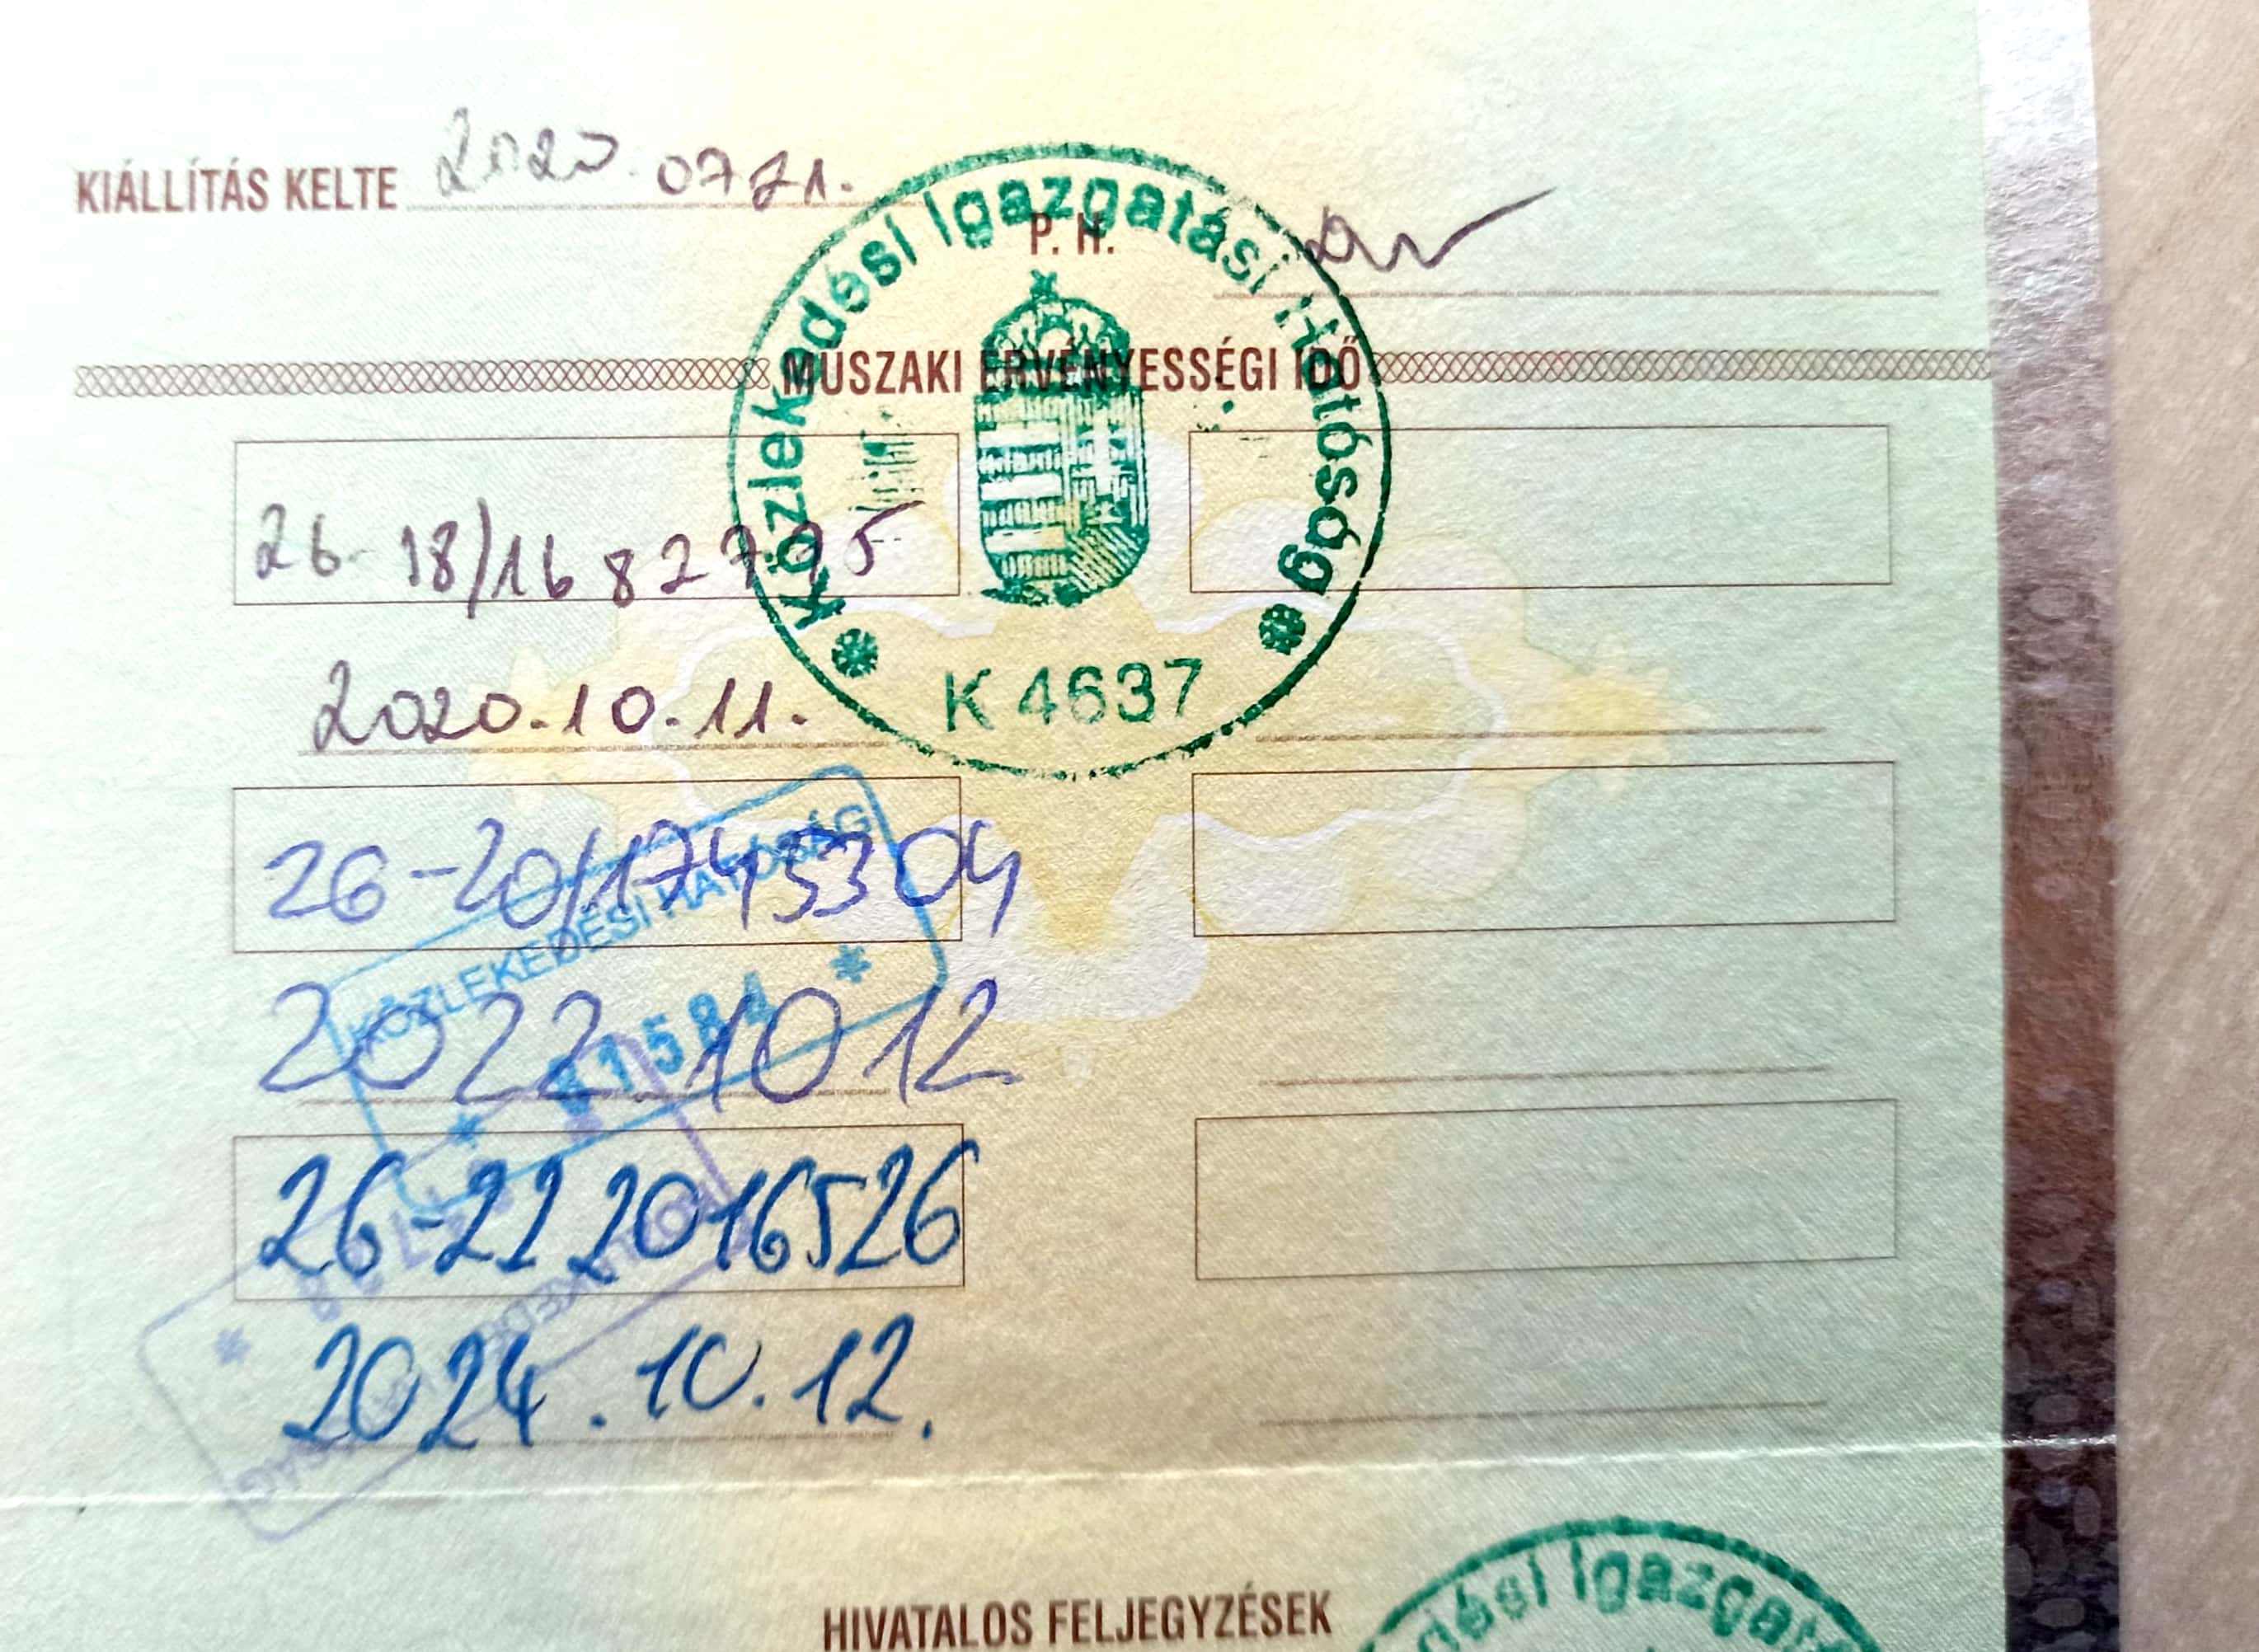 KIÁLLÍTÁS KELTE 2020.0721.
Közlekedési Igazgatási Hatóság
P. H.
MŰSZAKI ÉRVÉNYESSÉGI IDŐ
26-18/1682775
K 4637
2020.10.11.
26-20/1745304
KÖZLEKEDÉSI HATÓSÁG
2022 10 12
1584
26-22 2016526
2024.10.12.
HIVATALOS FELJEGYZÉSEK
Igazgat